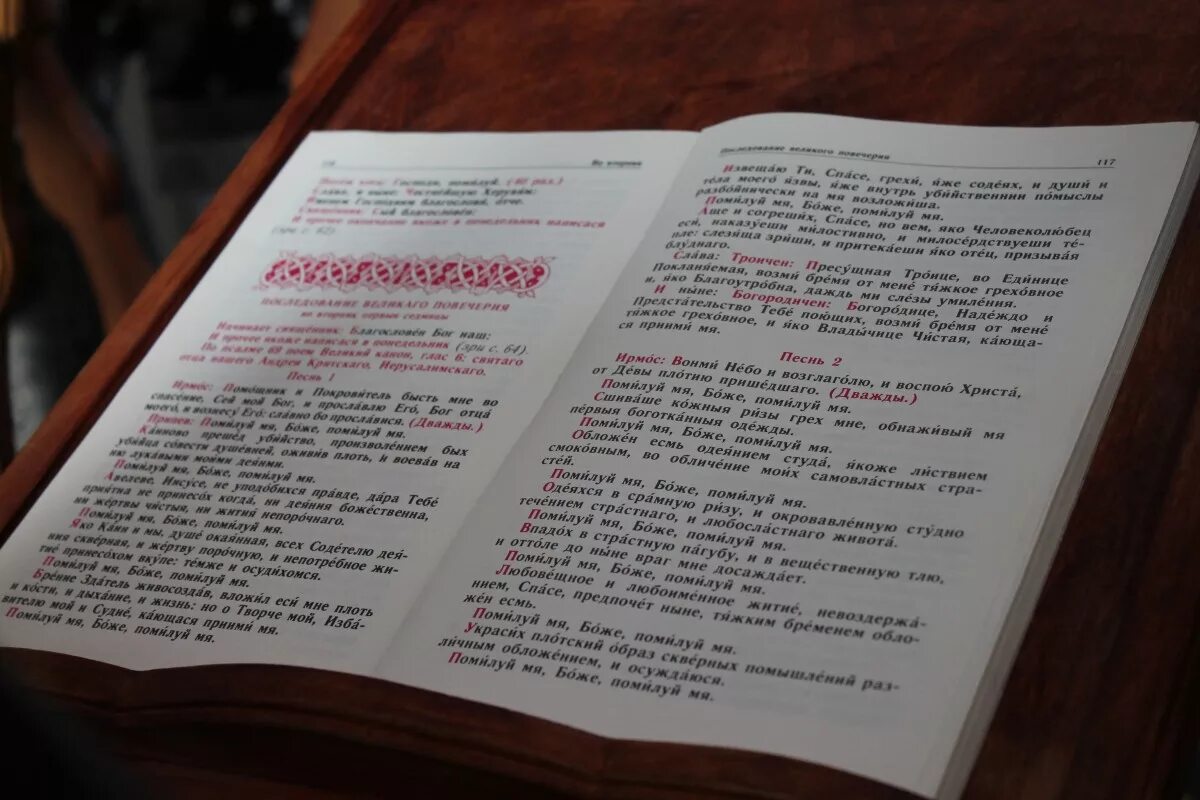 116 Во вторник
Поем кичу: Господи, помилуй. (40 раз.)
Слава, и ныне: Честнейшую Херувим:
Именем Господним благослови, о́тче.
Священник: Сый благословен:
И прочее окончание якоже в понедельник написася
(зри с. 62).
ПОСЛЕДОВАНИЕ ВЕЛИКАГО ПОВЕЧЕРИЯ
во вторник первыя седмицы
Начинает священник: Благословен Бог наш:
И прочее якоже написася в понедельник (зри с. 64).
По псалме 69 поем Великий канон, глас 6: святаго
отца нашего Андрея Критскаго, Иерусалимскаго.
Песнь 1
Ирмо́с: Помо́щник и Покрови́тель бысть мне во
спасе́ние, Сей мой Бог, и просла́влю Его́, Бог отца́
моего́, и вознесу́ Его́: сла́вно бо просла́вися. (Дважды.)
Припев: Поми́луй мя, Бо́же, поми́луй мя.
Ка́иново преше́д уби́йство, произволе́нием бых
уби́йца со́вести душе́вней, ожи́вив плоть, и воева́в на
ню лука́выми мои́ми дея́нии.
Поми́луй мя, Бо́же, поми́луй мя.
А́велеве, Иису́се, не уподо́бихся пра́вде, да́ра Тебе́
прия́тна не принесо́х когда́, ни дея́ния боже́ственна,
ни же́ртвы чи́стыя, ни жития́ непоро́чнаго.
Поми́луй мя, Бо́же, поми́луй мя.
Я́ко Ка́ин и мы, душе́ окая́нная, всех Соде́телю дея́-
ния скве́рная, и же́ртву поро́чную, и непотре́бное жи-
тие́ принесо́хом вку́пе: те́мже и осуди́хомся.
Поми́луй мя, Бо́же, поми́луй мя.
Бре́ние Зда́тель живосозда́в, вложи́л еси́ мне плоть
и ко́сти, и дыха́ние, и жизнь: но о Тво́рче мой, Изба́-
вителю мой и Судие́, ка́ющася приими́ мя.
Поми́луй мя, Бо́же, поми́луй мя.
Последование великого повечерия 117
Извеща́ю Ти, Спа́се, грехи́, я́же соде́ях, и души́ и
те́ла моего́ я́звы, я́же внутрь уби́йственнии по́мыслы
разбо́йнически на мя возложи́ша.
Поми́луй мя, Бо́же, поми́луй мя.
А́ще и согреши́х, Спа́се, но вем, я́ко Человеколю́бец
еси́, наказу́еши ми́лостивно, и милосе́рдствуеши те́-
пле: слезя́ща зри́ши, и притека́еши я́ко оте́ц, призыва́я
блу́днаго.
Сла́ва: Тро́ичен: Пресу́щная Тро́ице, во Еди́нице
Покланя́емая, возми́ бре́мя от мене́ тя́жкое грехо́вное
и, я́ко Благоутро́бна, даждь ми сле́зы умиле́ния.
И ны́не: Богоро́дичен: Богоро́дице, Наде́ждо и
Предста́тельство Тебе́ пою́щих, возми́ бре́мя от мене́
тя́жкое грехо́вное, и я́ко Влады́чице Чи́стая, ка́юща-
ся приими́ мя.
Песнь 2
Ирмо́с: Вонми́ Не́бо и возглаго́лю, и воспою́ Христа́,
от Де́вы пло́тию прише́дшаго. (Дважды.)
Поми́луй мя, Бо́же, поми́луй мя.
Сшива́ше ко́жныя ри́зы грех мне, обнажи́вый мя
пе́рвыя боготка́нныя оде́жды.
Поми́луй мя, Бо́же, поми́луй мя.
Обложе́н есмь одея́нием студа́, я́коже ли́ствием
смоко́вным, во обличе́ние мои́х самовла́стных стра-
сте́й.
Поми́луй мя, Бо́же, поми́луй мя.
Оде́яхся в сра́мную ри́зу, и окровавле́нную сту́дно
тече́нием стра́стнаго, и любосла́стнаго живота́.
Поми́луй мя, Бо́же, поми́луй мя.
Впадо́х в стра́стную па́губу, и в веще́ственную тлю,
и отто́ле до ны́не враг мне досажда́ет.
Поми́луй мя, Бо́же, поми́луй мя.
Любове́щное и любоиме́нное житие́, невоздержа́-
нием, Спа́се, предпоче́т ны́не, тя́жким бре́менем обло-
же́н есмь.
Поми́луй мя, Бо́же, поми́луй мя.
Украси́х плотски́й о́браз скве́рных помышле́ний раз-
ли́чным обложе́нием, и осужда́юся.
Поми́луй мя, Бо́же, поми́луй мя.